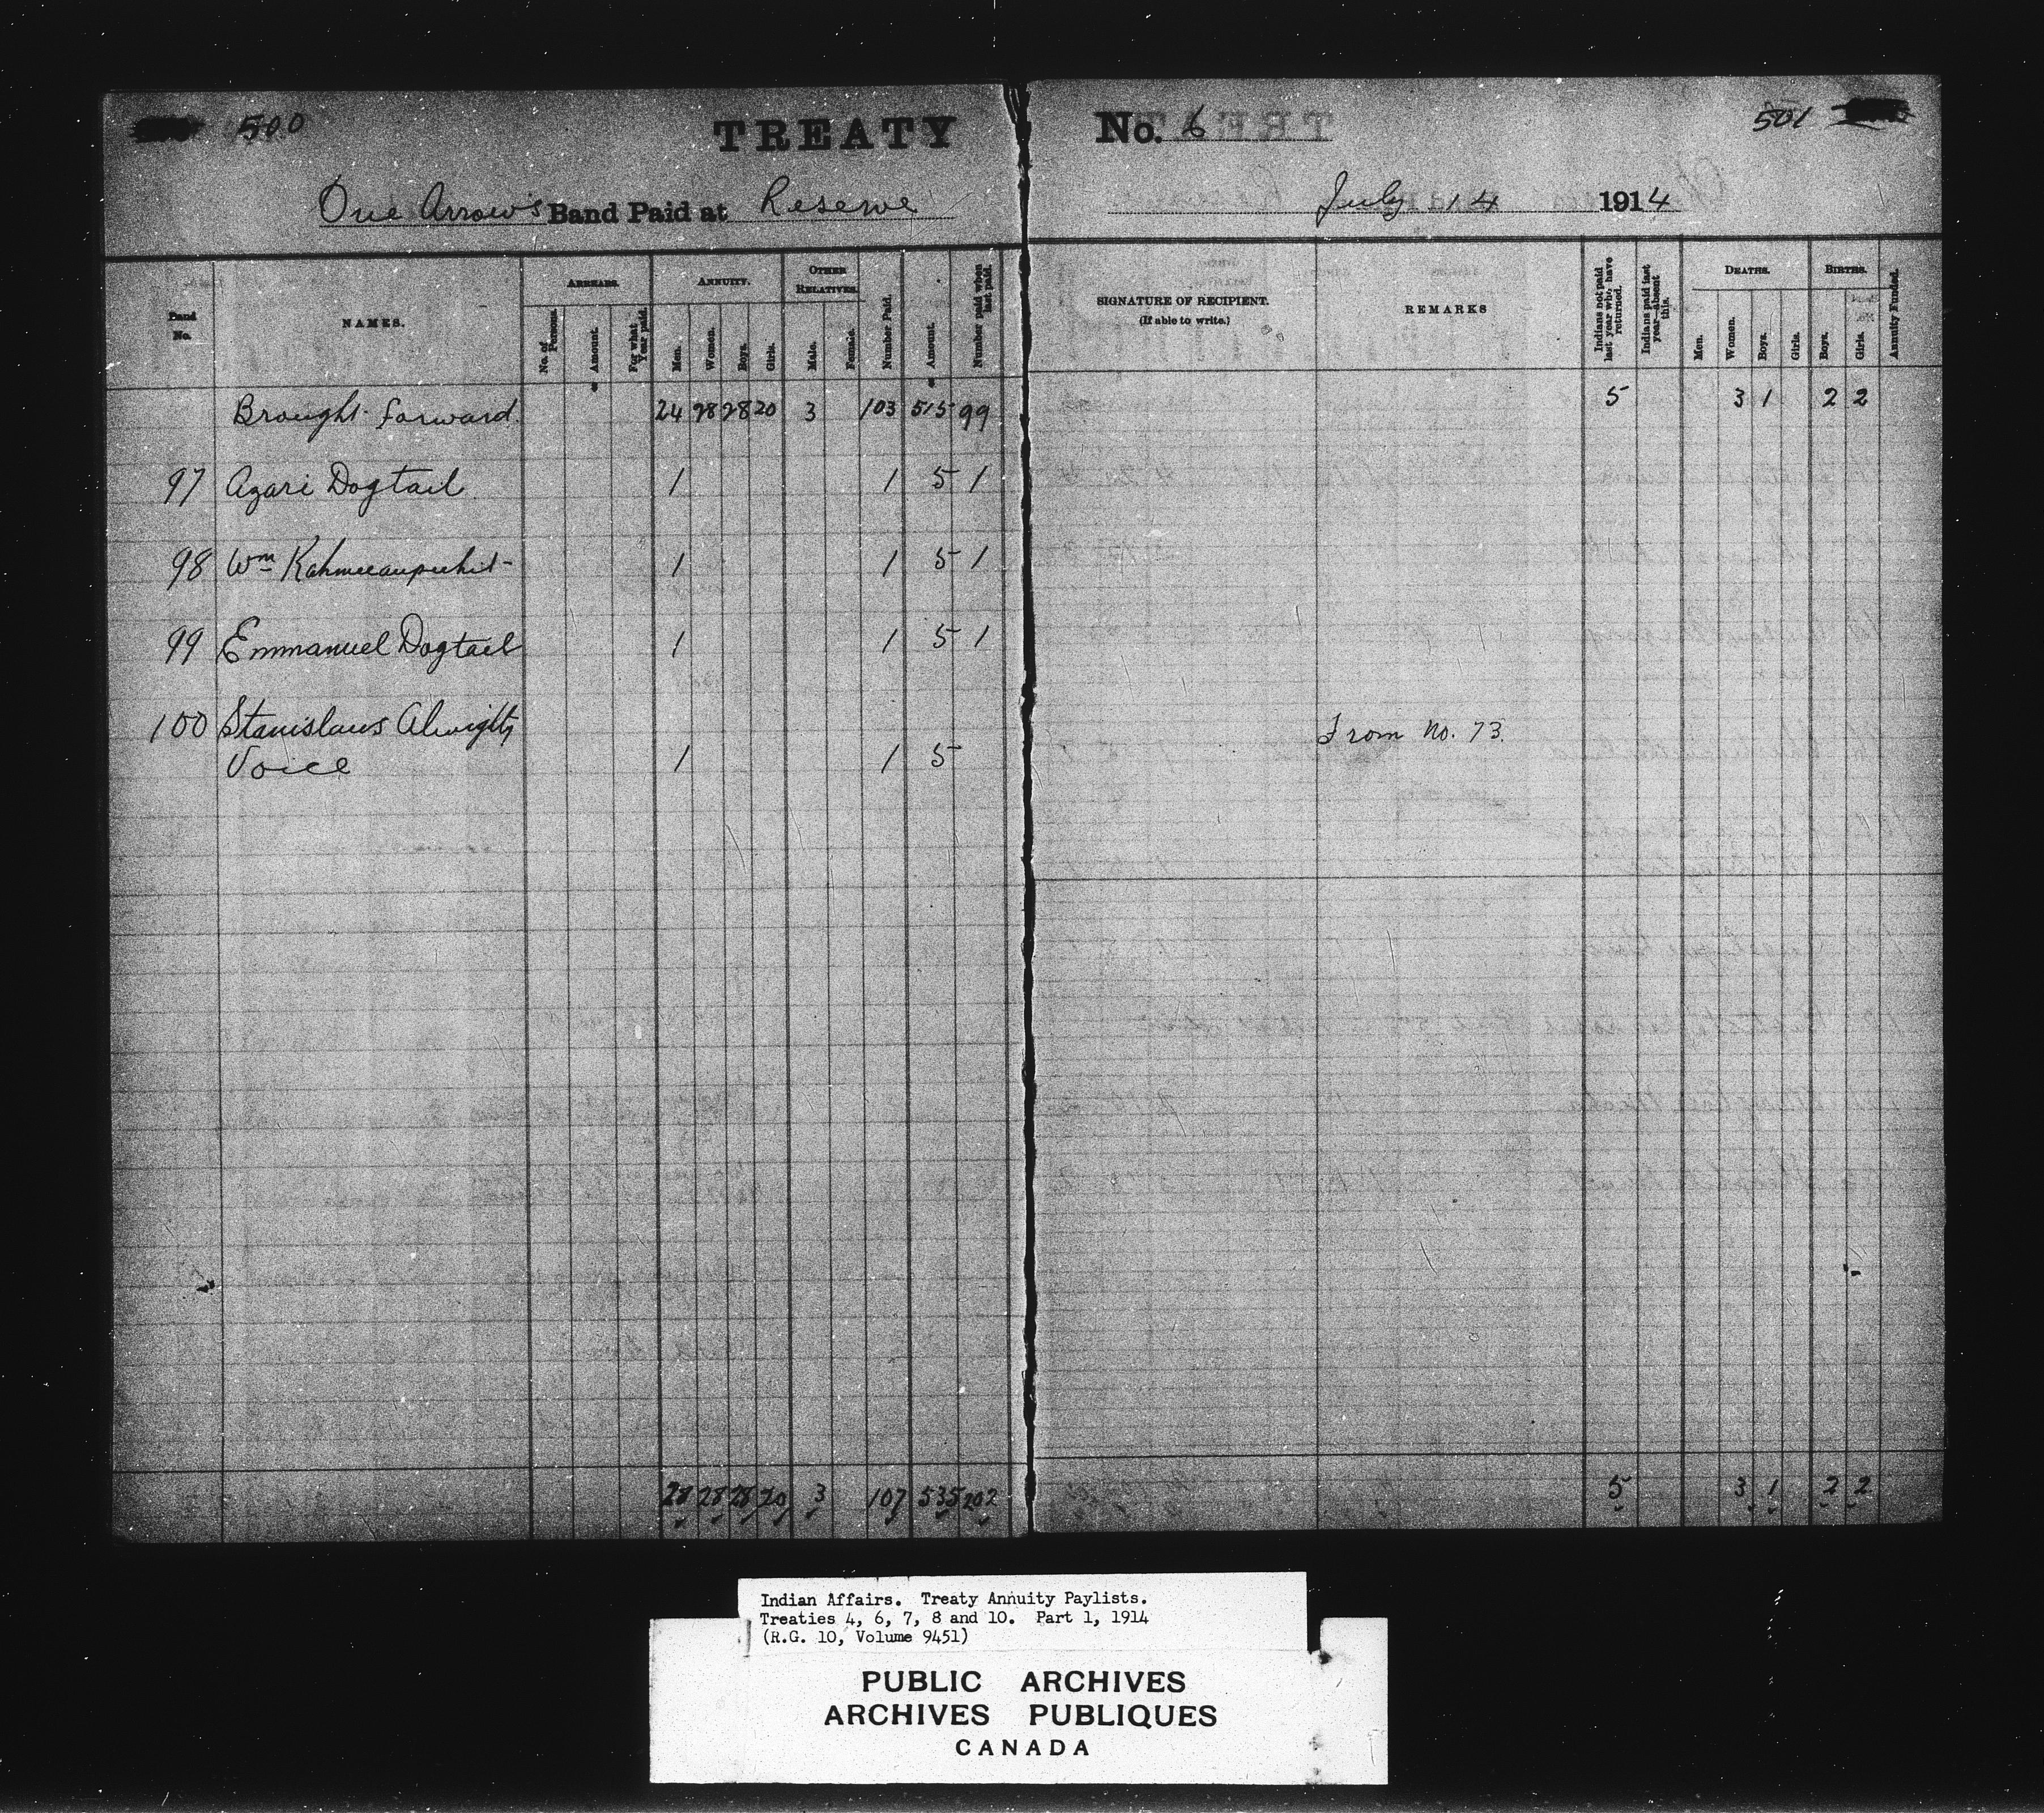 500
TREATY
No. 6
501
One Arrow's Band Paid at Reserve
July 14 1914
Band No.
NAMES.
ARREARS.
No. of Persons.
Amount.
For what Year paid.
ANNUITY.
Men.
Women.
Boys.
Girls.
OTHER RELATIVES.
Male.
Female.
Number Paid.
Amount.
Number paid when last paid.
SIGNATURE OF RECIPIENT.
(If able to write.)
REMARKS
Indians not paid last year who have returned.
Indians paid last year—absent this.
DEATHS.
Men.
Women.
Boys.
Girls.
BIRTHS.
Boys.
Girls.
Annuity Funded.
Brought forward. 24 28 28 20 3 103 515 99 5 3 1 2 2
97 Azari Dogtail 1 1 5 1
98 Wm 1 1 5 1
99 Emmanuel Dogtail 1 1 5 1
100 Stanislaus Almighty From No. 73.
Voice 1 1 5
28 28 28 20 3 107 535 202 5 3 1 2 2
Indian Affairs. Treaty Annuity Paylists.
Treaties 4, 6, 7, 8 and 10. Part 1, 1914
(R.G. 10, Volume 9451)
PUBLIC ARCHIVES
ARCHIVES PUBLIQUES
CANADA